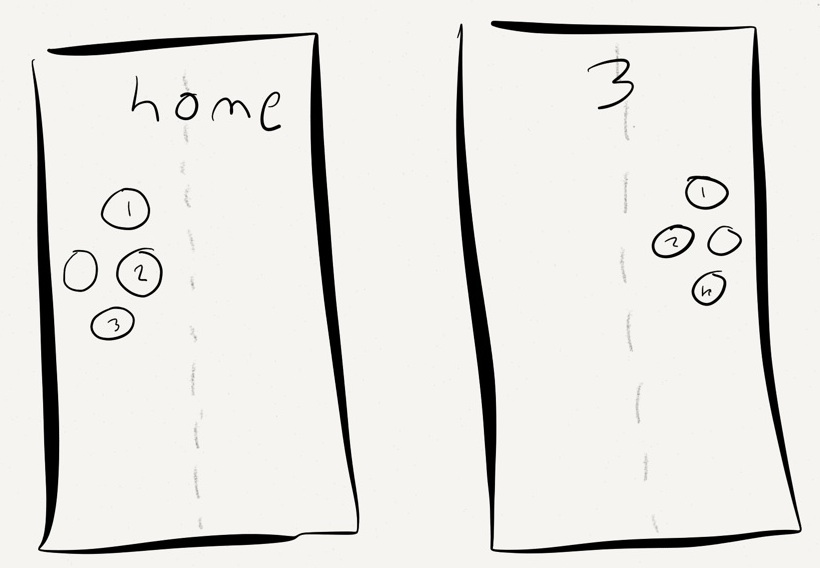 home
1
2
3
3
1
2
h